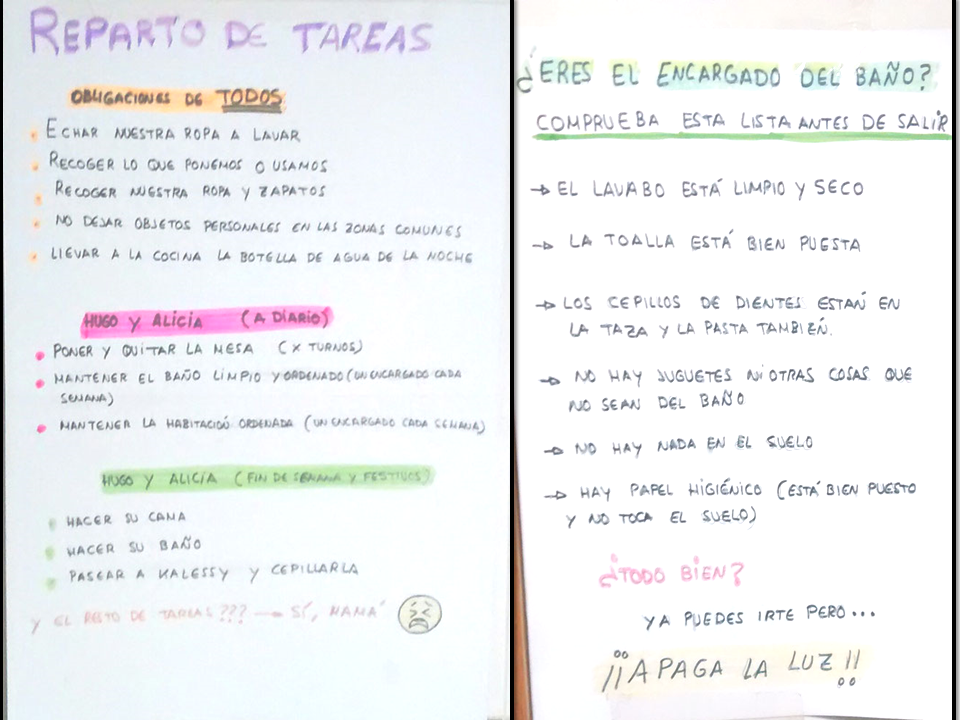 REPARTO DE TAREAS
OBLIGACIONES DE TODOS
ECHAR NUESTRA ROPA A LAVAR
RECOGER LO QUE PONEMOS O USAMOS
RECOGER NUESTRA ROPA Y ZAPATOS
NO DEJAR OBJETOS PERSONALES EN LAS ZONAS COMUNES
LLEVAR A LA COCINA LA BOTELLA DE AGUA DE LA NOCHE
HUGO Y ALICIA (A DIARIO)
PONER Y QUITAR LA MESA (X TURNOS)
MANTENER EL BAÑO LIMPIO Y ORDENADO (UN ENCARGADO CADA
SEMANA)
MANTENER LA HABITACIÓ ORDENADA (UN ENCARGADO CADA SEMANA)
HUGO Y ALICIA (FIN DE SEMANA Y FESTIVOS)
HACER SU CAMA
HACER SU BAÑO
PASEAR A KALESSY Y CEPILLARLA
Y EL RESTO DE TAREAS??? → SÍ, MAMÁ
¿ERES EL ENCARGADO DEL BAÑO?
COMPRUEBA ESTA LISTA ANTES DE SALIR
→ EL LAVABO ESTÁ LIMPIO Y SECO
→ LA TOALLA ESTÁ BIEN PUESTA
→ LOS CEPILLOS DE DIENTES ESTÁN EN
LA TAZA Y LA PASTA TAMBIÉN.
→ NO HAY JUGUETES NI OTRAS COSAS QUE
NO SEAN DEL BAÑO
→ NO HAY NADA EN EL SUELO
→ HAY PAPEL HIGIÉNICO (ESTÁ BIEN PUESTO
Y NO TOCA EL SUELO)
¿TODO BIEN?
YA PUEDES IRTE PERO...
¡¡APAGA LA LUZ!!